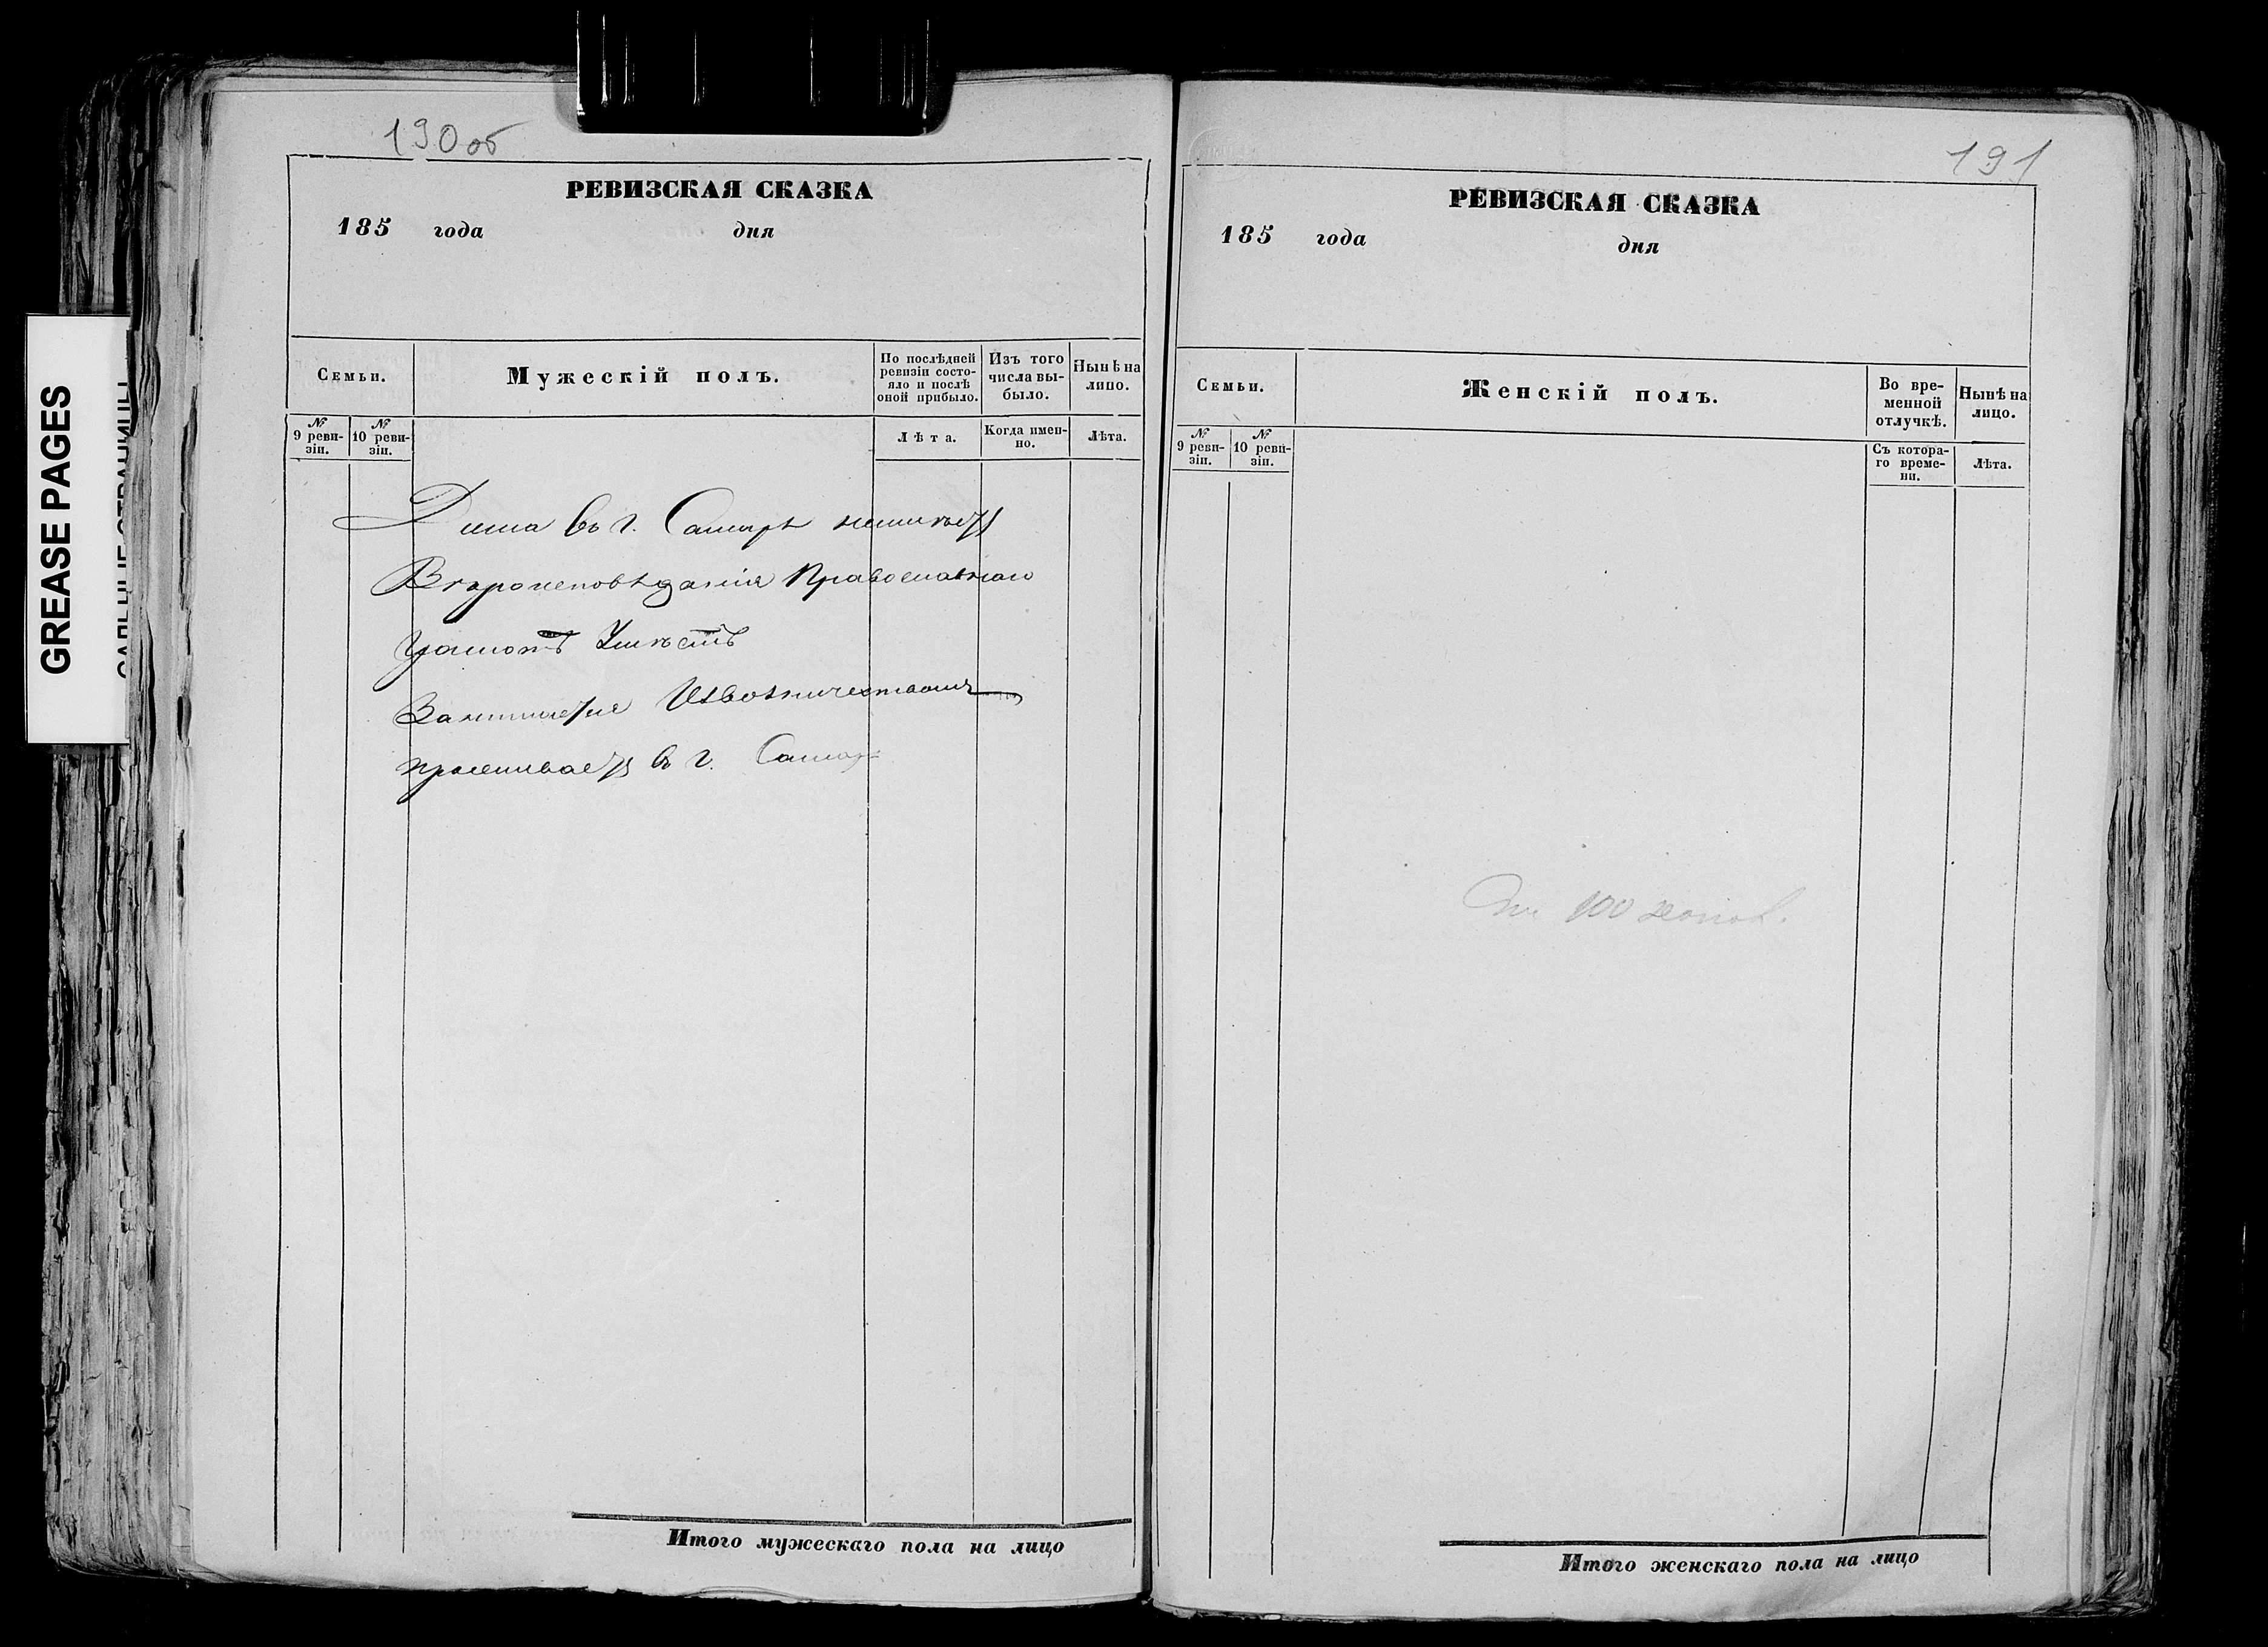 190 об
РЕВИЗСКАЯ СКАЗКА
185 года дня
Семьи.
Мужескій полъ.
По послѣдней ревизіи состо-
яло и послѣ оной прибыло.
Изъ того числа вы-
было.
Нынѣ на лицо.
№ 9 реви-
зіи.
№ 10 реви-
зіи.
Лѣта.
Когда имен-
но.
Лѣта.
Дома въ г. Самарѣ неимеетъ
Вероисповѣданія Православнаго
Грамотѣ
Занимается Извозничествомъ
проживаетъ въ г. Самарѣ
Итого мужескаго пола на лицо
191
РЕВИЗСКАЯ СКАЗКА
185 года дня
Семьи.
Женскій полъ.
Во вре-
менной
отлучкѣ.
Нынѣ на
лицо.
№ 9 реви-
зіи.
№ 10 реви-
зіи.
Съ котора-
го време-
ни.
Лѣта.
100
Итого женскаго пола на лицо
GREASE PAGES